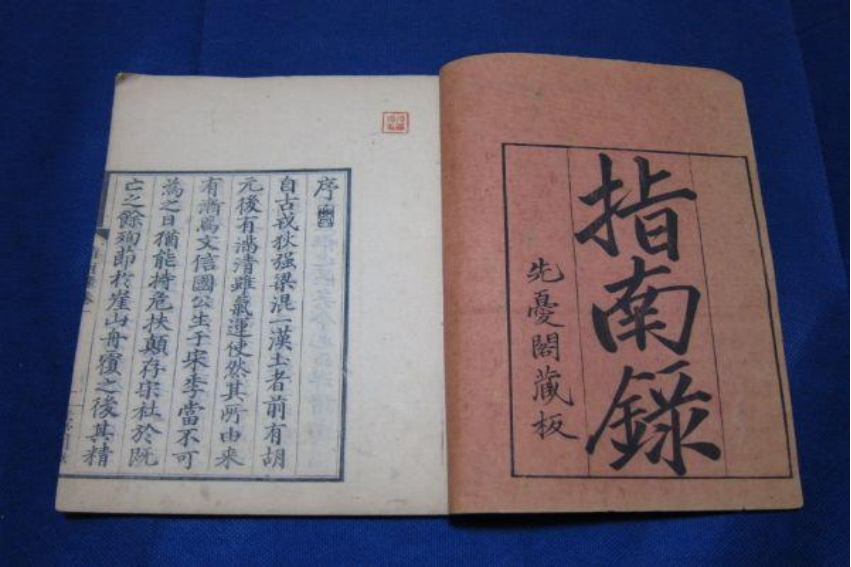 指南錄
先憂閣藏板
序
自古戎狄强梁混一漢土者前有胡
元後有滿清雖氣運使然其所由来
有漸焉文信國公生于宋季當不可
為之日猶能持危扶顛存宋社於既
亡之餘殉節於崖山舟覆之後其精